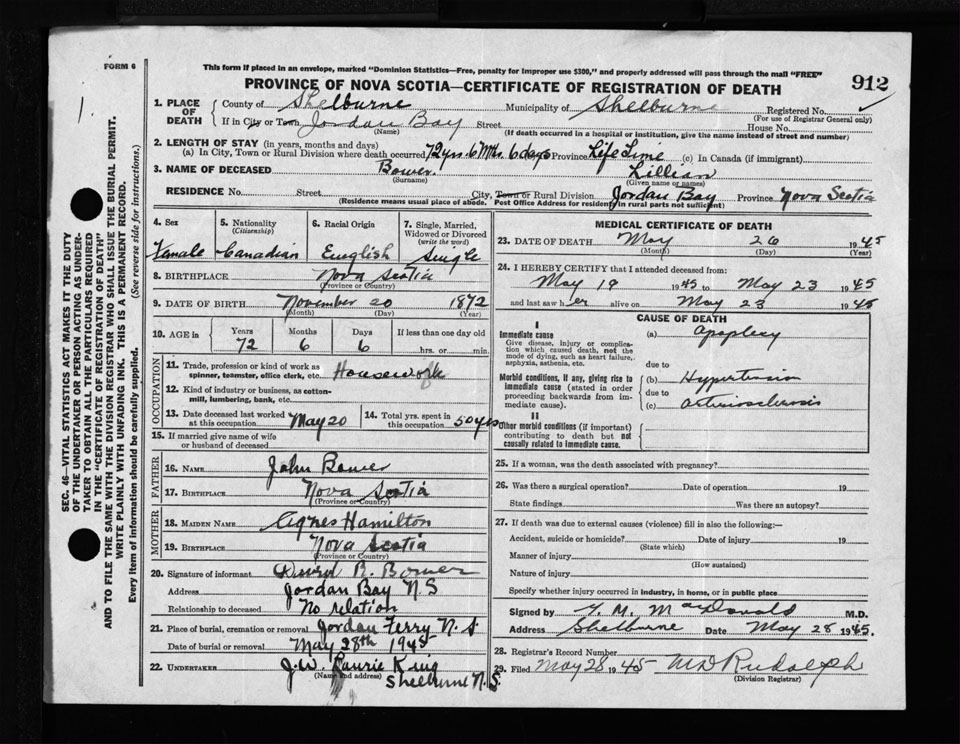 FORM 6
This form if placed in an envelope, marked "Dominion Statistics—Free, penalty for improper use $300," and properly addressed will pass through the mail "FREE"
PROVINCE OF NOVA SCOTIA—CERTIFICATE OF REGISTRATION OF DEATH
912
1. PLACE OF DEATH
County of Shelburne Municipality of Shelburne Registered No.
(For use of Registrar General only)
If in City or Town Jordan Bay Street House No.
(Name) (If death occurred in a hospital or institution, give the name instead of street and number)
2. LENGTH OF STAY (in years, months and days)
(a) In City, Town or Rural Division where death occurred 72 yrs. 6 Mths. 6 days Province Life Time (c) In Canada (if immigrant)
3. NAME OF DECEASED Bower. Lillian
(Surname) (Given name or names)
RESIDENCE No. Street City, Town or Rural Division Jordan Bay Province Nova Scotia
(Residence means usual place of abode. Post Office Address for residents in rural parts not sufficient)
4. Sex 5. Nationality (Citizenship) 6. Racial Origin 7. Single, Married, Widowed or Divorced (write the word)
Female Canadian English Single
8. BIRTHPLACE Nova Scotia
(Province or Country)
9. DATE OF BIRTH November 20 1872
(Month) (Day) (Year)
10. AGE in Years Months Days If less than one day old
72 6 6 hrs. or min.
OCCUPATION
11. Trade, profession or kind of work as spinner, teamster, office clerk, etc. Housework
12. Kind of industry or business, as cotton-mill, lumbering, bank, etc.
13. Date deceased last worked at this occupation May 20 14. Total yrs. spent in this occupation 50 yrs
15. If married give name of wife or husband of deceased
FATHER
16. NAME John Bower
17. BIRTHPLACE Nova Scotia
(Province or Country)
MOTHER
18. MAIDEN NAME Agnes Hamilton
19. BIRTHPLACE Nova Scotia
(Province or Country)
20. Signature of informant R. Bower
Address Jordan Bay N S
Relationship to deceased No relation
21. Place of burial, cremation or removal Jordan Ferry N.S
Date of burial or removal May 28th 1945
22. UNDERTAKER J.W. Laurie King
(Name and address) Shelburne N.S.
MEDICAL CERTIFICATE OF DEATH
23. DATE OF DEATH May 26 1945
(Month) (Day) (Year)
24. I HEREBY CERTIFY that I attended deceased from:
May 19 1945 to May 23 1945
and last saw h er alive on May 23 1945
CAUSE OF DEATH
I
Immediate cause (a) apoplexy
Give disease, injury or complication which caused death, not the mode of dying, such as heart failure, asphyxia, asthenia, etc.
due to
Morbid conditions, if any, giving rise to immediate cause (stated in order proceeding backwards from immediate cause).
(b) Hypertension
due to
(c) arteriosclerosis
II
Other morbid conditions (if important) contributing to death but not causally related to immediate cause.
25. If a woman, was the death associated with pregnancy?
26. Was there a surgical operation? Date of operation 19
State findings Was there an autopsy?
27. If death was due to external causes (violence) fill in also the following:—
Accident, suicide or homicide? Date of injury 19
(State which)
Manner of injury
(How sustained)
Nature of injury
Specify whether injury occurred in industry, in home, or in public place
Signed by MacDonald M.D.
Address Shelburne Date May 28 1945.
28. Registrar's Record Number
29. Filed May 28 1945 MD Rudolph
(Division Registrar)
SEC. 46—VITAL STATISTICS ACT MAKES IT THE DUTY
OF THE UNDERTAKER OR PERSON ACTING AS UNDER-
TAKER TO OBTAIN ALL THE PARTICULARS REQUIRED
IN THE "CERTIFICATE OF REGISTRATION OF DEATH"
AND TO FILE THE SAME WITH THE DIVISION REGISTRAR WHO SHALL ISSUE THE BURIAL PERMIT.
WRITE PLAINLY WITH UNFADING INK. THIS IS A PERMANENT RECORD.
Every item of information should be carefully supplied. (See reverse side for instructions.)